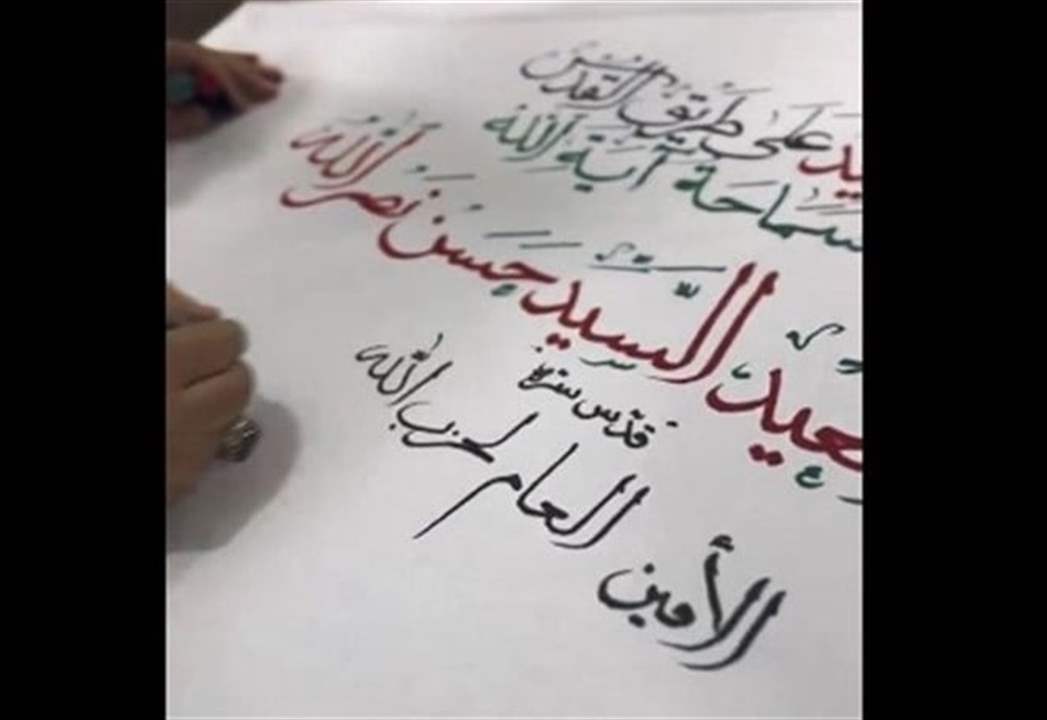 يد عَلى طريق القدس
سماحة آية الله
عيد السَّيد حَسَن نصر الله
قدّس سره
الأمين العام لحزب الله